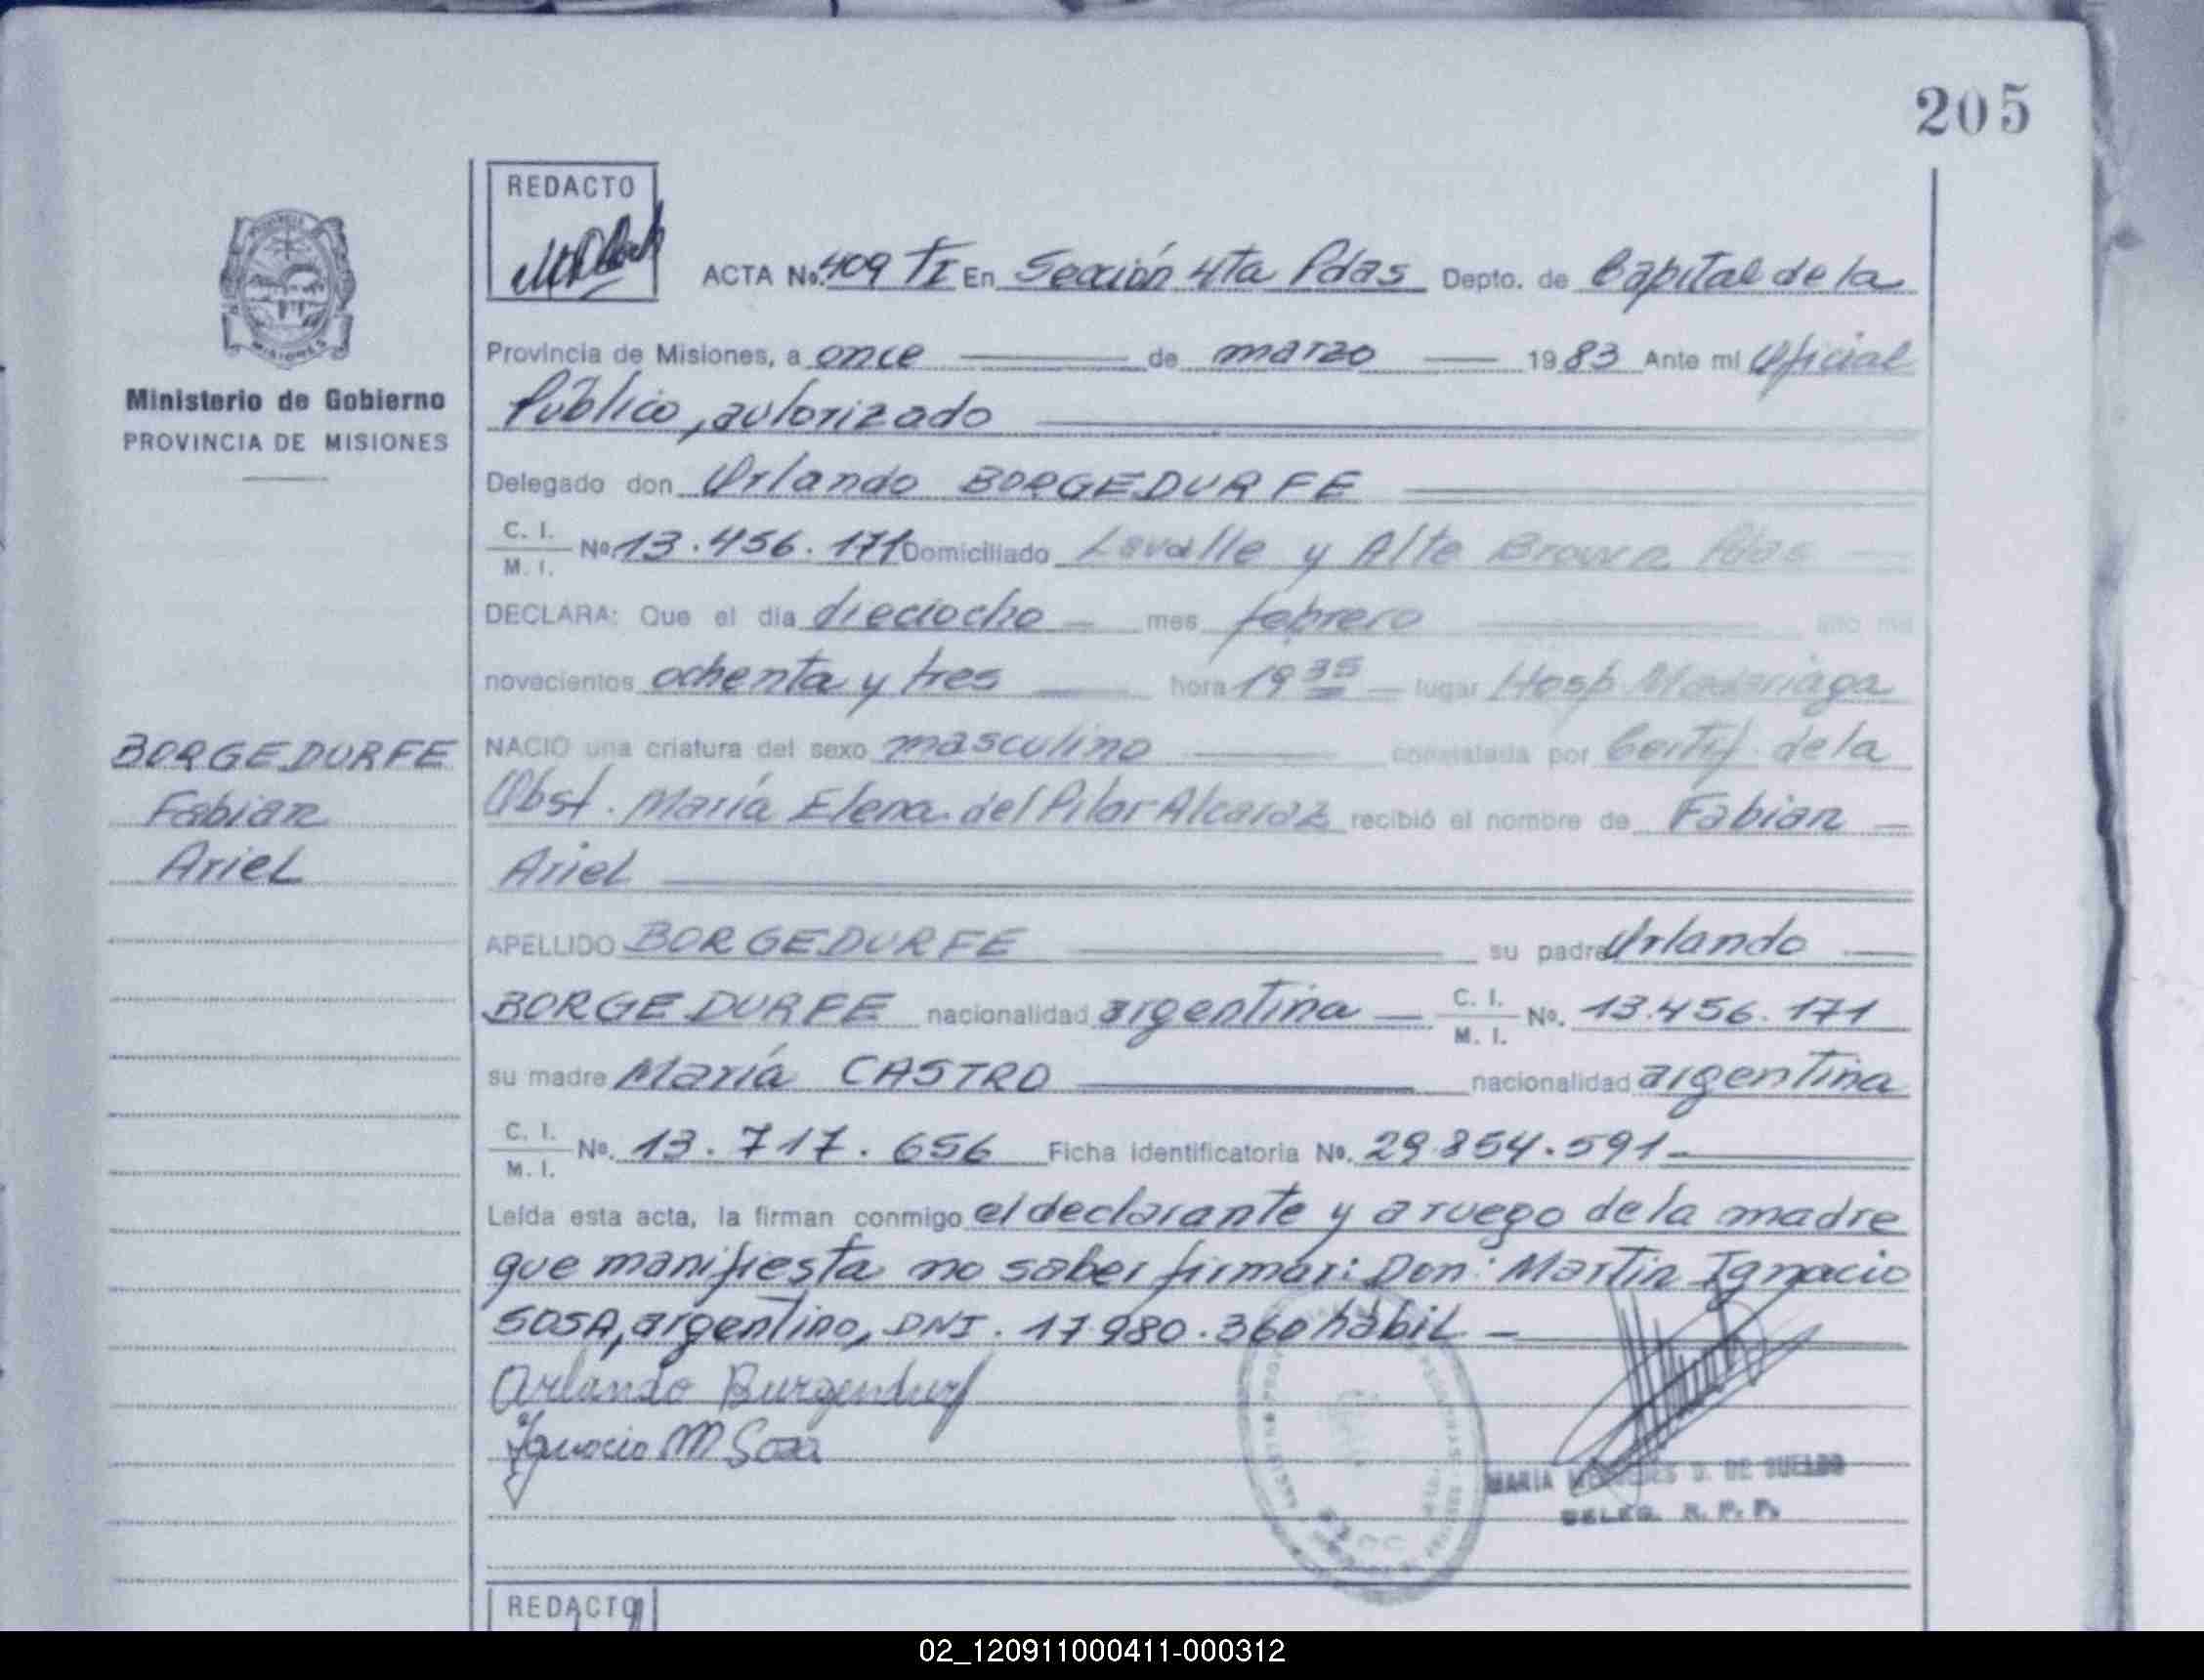 205
REDACTO
ACTA No. 409 TI En Sección 4ta Pdas Depto. de Capital de la
Provincia de Misiones, a once de marzo 1983 Ante mi Oficial
Público, autorizado
Ministerio de Gobierno
PROVINCIA DE MISIONES
Delegado don Orlando BORGEDURFE
C. I.
M. I.
No. 13.456.171 Domiciliado Lavalle y Alte Brown Pdas
DECLARA: Que el día dieciocho mes febrero año mil
novecientos ochenta y tres hora 19 35 lugar Hosp Madariaga
BORGEDURFE
Fabian
Ariel
NACIO una criatura del sexo masculino constatada por Certif. de la
Obst. María Elena del Pilar Alcaraz recibió el nombre de Fabian
Ariel
APELLIDO BORGEDURFE su padre Orlando
BORGEDURFE nacionalidad argentina C. I. M. I. No. 13.456.171
su madre María CASTRO nacionalidad argentina
C. I.
M. I.
No. 13.717.656 Ficha identificatoria No. 29.854.591
Leída esta acta, la firman conmigo el declarante y a ruego de la madre
que manifiesta no saber firmar: Don: Martin Ignacio
SOSA, argentino, DNI. 17.980.360 hábil
Orlando Burgendurf
Ignacio M Sosa
MARIA MERCEDES D. DE SUELDO
DELEG. R. P. P.
REDACTO
02_120911000411-000312